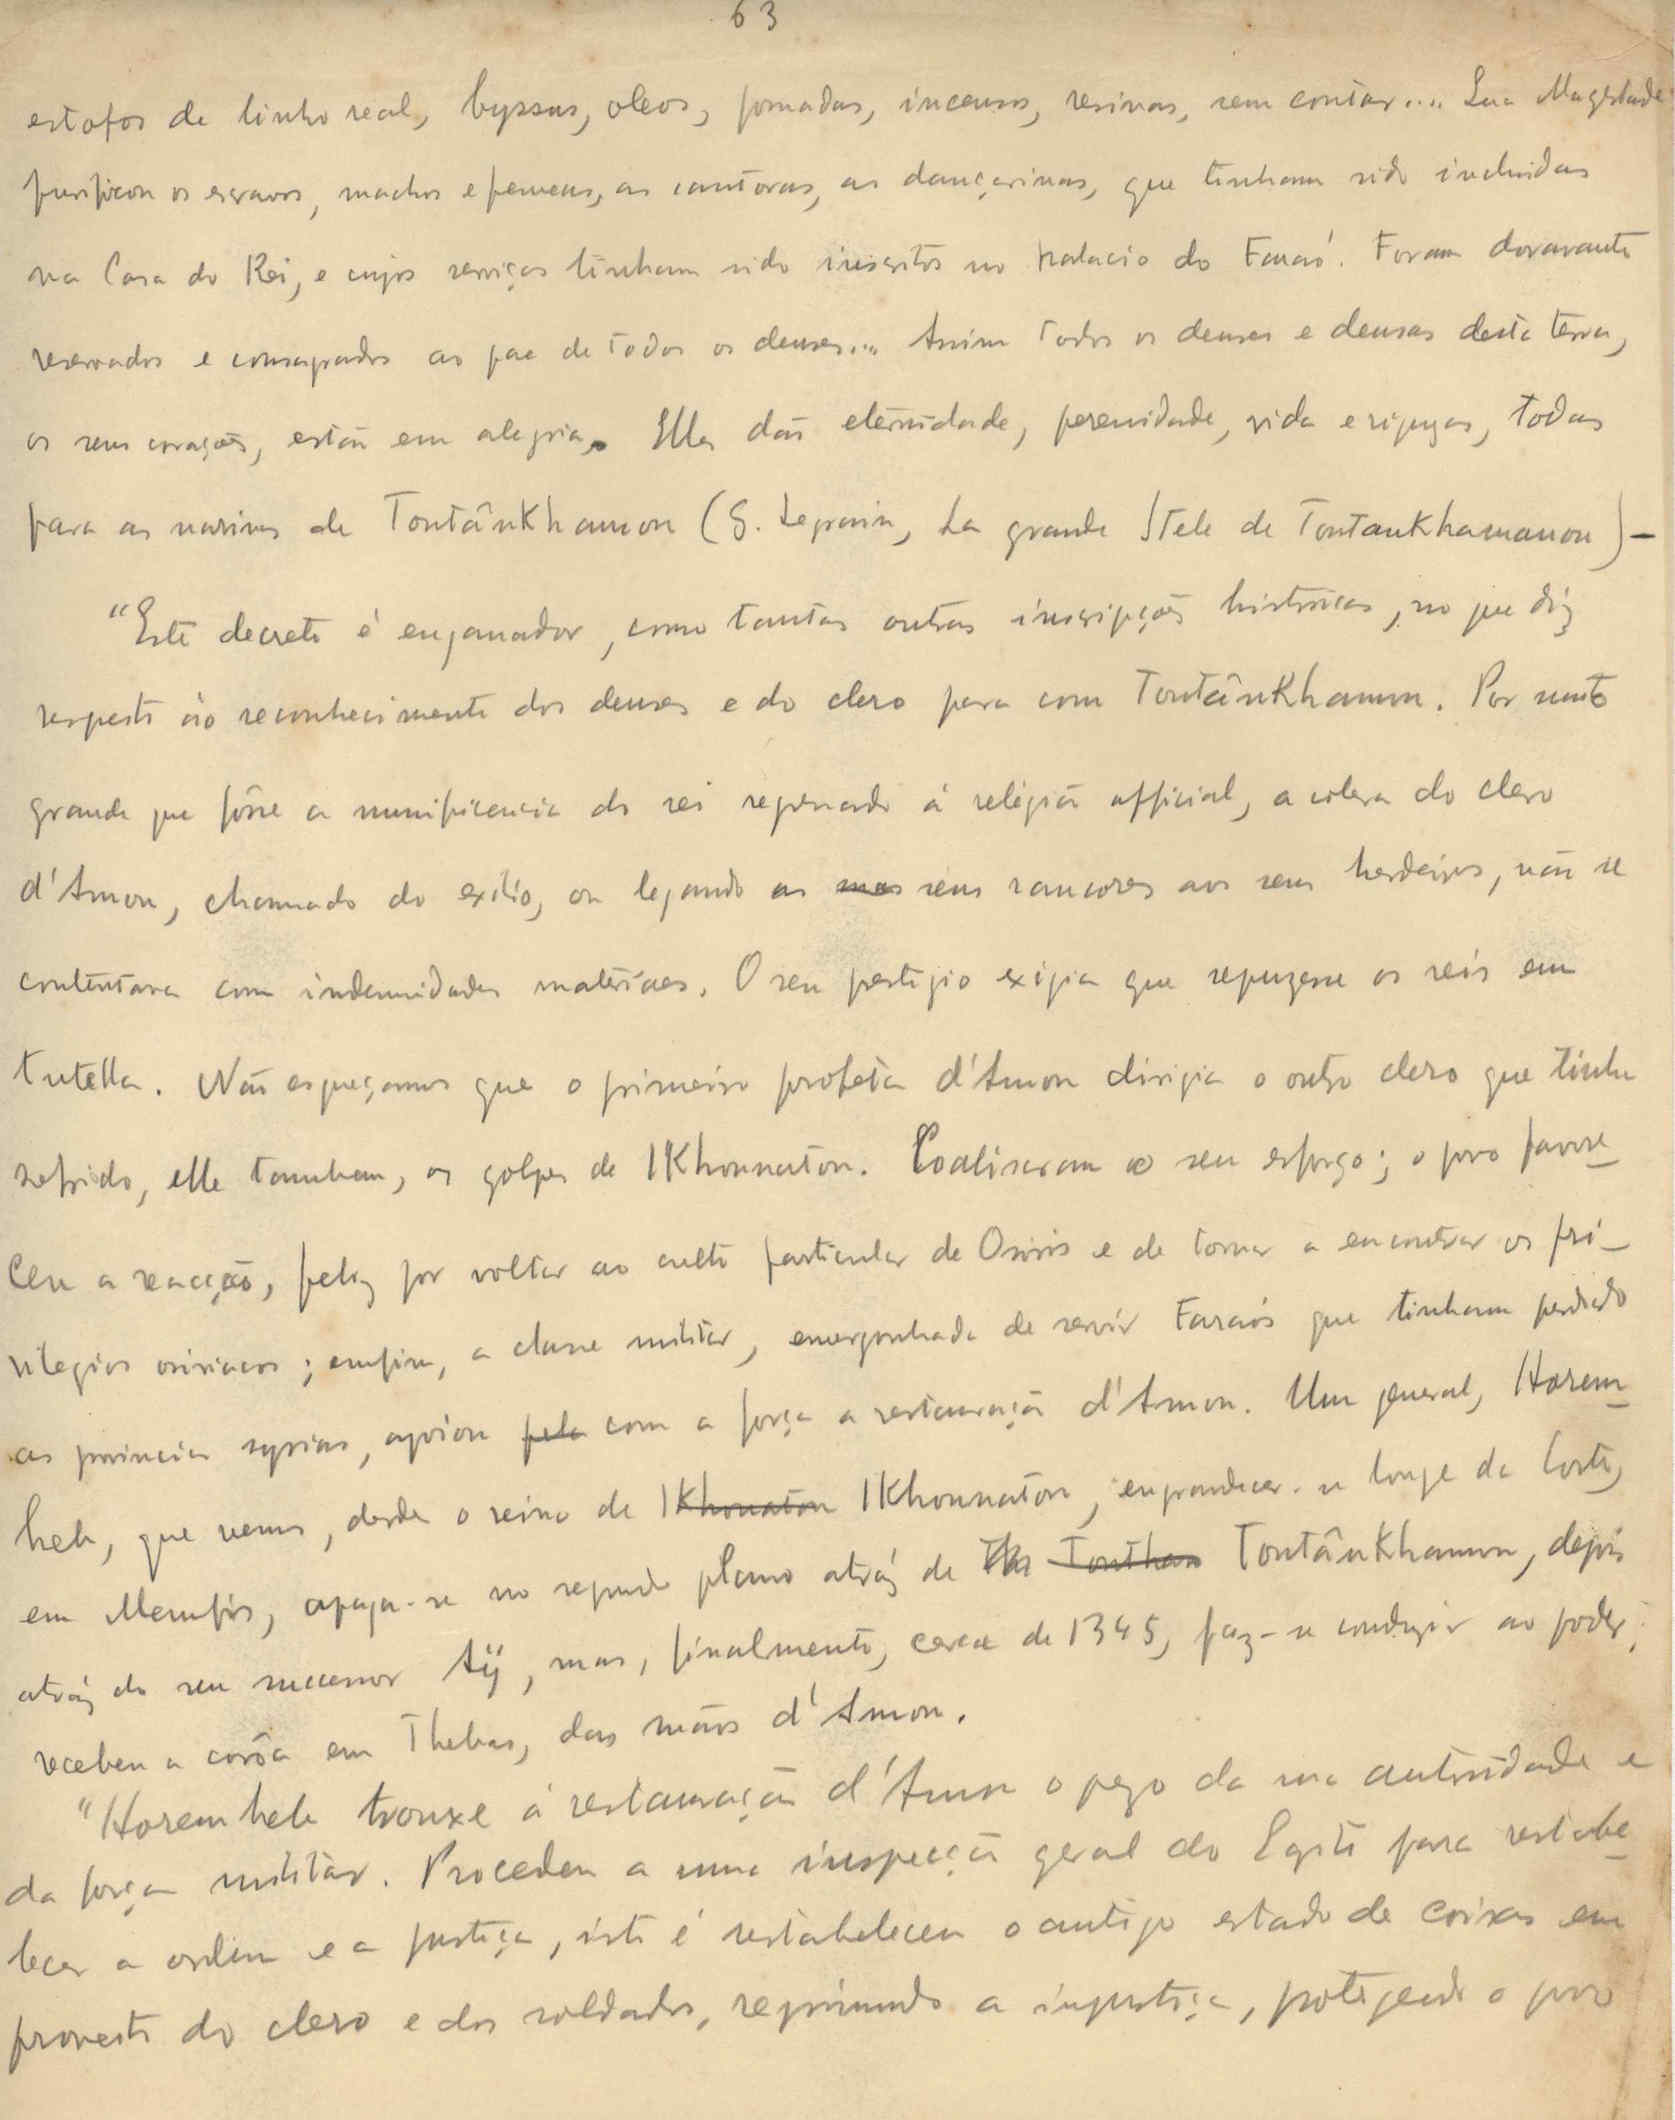 63
estofos de linho real, byssus, oleos, pomadas, incensos, resinas, sem contar.... Sua Magestade
purificou os escravos, machos e femeas, as cantoras, as dançarinas, que tinham sido incluidas
na Casa do Rei, e cujos serviços tinham sido inscritos no palacio do Faraó. Foram doravante
reservados e consagrados ao pae de todos os deuses... Assim todos os deuses e deusas desta terra,
os seus corações, estão em alegria. Elles dão eternidade, perenidade, vida e riquezas, todas
para as narinas de Toutânkhamon (G. Legrain, La grande Stele de Toutankhamanon) -
"Este decreto é enganador, como tantas outras inscripções historicas, no que diz
respeito ao reconhecimento dos deuses e do clero para com Toutânkhamon. Por muito
grande que fôsse a munificencia do rei regressado á religião official, a colera do clero
d'Amon, chamado do exilio, ou legando os seus rancores aos seus herdeiros, não se
contentava com indemnidades materiaes. O seu prestigio exigia que repuzesse os reis em
tutella. Não esqueçamos que o primeiro profeta d'Amon dirigia o outro clero que tinha
sofrido, elle tambem, os golpes de IKhounaton. Coalisaram o seu esforço; o povo favore-
ceu a reacção, feliz por voltar ao culto particular de Osiris e de tornar a encontrar os pri-
vilegios osiriacos; emfim, a classe militar, envergonhada de servir Faraós que tinham perdido
as provincias syrias, apoiou pela com a força a restauração d'Amon. Um general, Horem-
heb, que vemos, desde o reino de IKhonaton IKhounaton, engrandecer-se longe da Corte,
em Memfis, apaga-se no segundo plano atráz de Touthan Toutânkhamon, depois
atráz do seu successor Aÿ, mas, finalmente, cerca de 1345, faz-se conduzir ao poder;
recebeu a corôa em Thebas, das mãos d'Amon.
"Horemheb trouxe á restauração d'Amon o pezo da sua autoridade e
da força militar. Procedeu a uma inspecção geral do Egito para restabe-
lecer a ordem e a justiça, isto é restabeleceu o antigo estado de coisas em
proveito do clero e dos soldados, reprimindo a injustiça, protegendo o povo